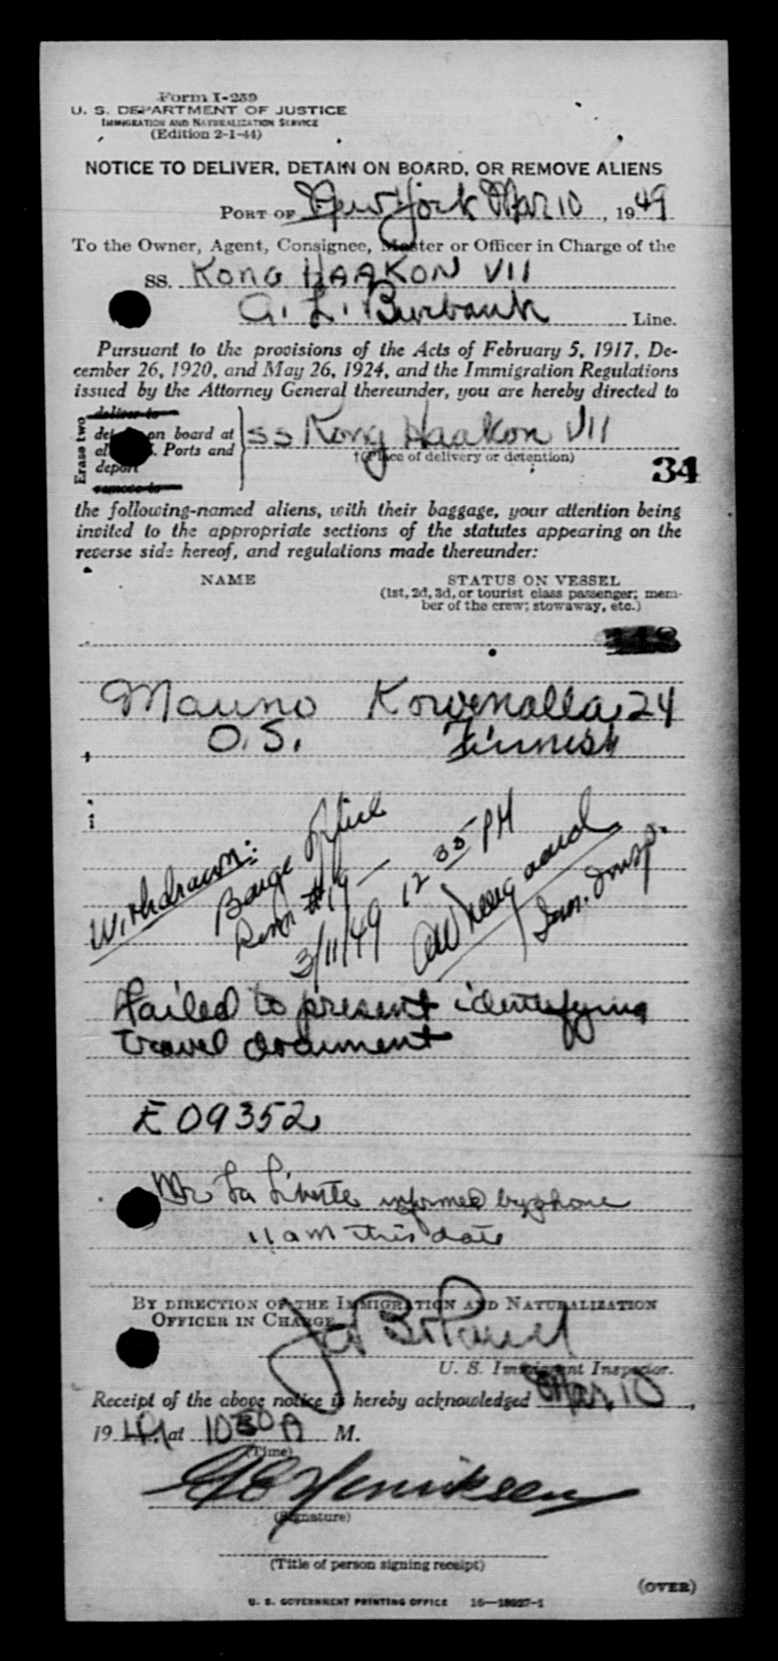 Form I-259
U. S. DEPARTMENT OF JUSTICE
IMMIGRATION AND NATURALIZATION SERVICE
(Edition 2-1-44)
NOTICE TO DELIVER, DETAIN ON BOARD, OR REMOVE ALIENS
PORT OF New York Mar 10, 1949
To the Owner, Agent, Consignee, Master or Officer in Charge of the
SS. KONG HAAKON VII
A. L. Burbank Line.
Pursuant to the provisions of the Acts of February 5, 1917, De-
cember 26, 1920, and May 26, 1924, and the Immigration Regulations
issued by the Attorney General thereunder, you are hereby directed to
Erase two
deliver to
on board at
Ports and
deport
remove to
SS Kong Haakon VII
†(Place of delivery or detention)
34
the following-named aliens, with their baggage, your attention being
invited to the appropriate sections of the statutes appearing on the
reverse side hereof, and regulations made thereunder:
NAME
STATUS ON VESSEL
(1st, 2d, 3d, or tourist class passenger; mem-
ber of the crew; stowaway, etc.)
Mauno 24
O.S. Finnish
Withdrawn:
Barge Office
Room #14 —
3/11/49 12 35 PM
Imm. Insp.
Failed to present identifying
travel document
E 09352
Mr La Liberte informed by phone
11 am this date
BY DIRECTION OF THE IMMIGRATION AND NATURALIZATION
OFFICER IN CHARGE
U. S. Immigrant Inspector.
Receipt of the above notice is hereby acknowledged Mar 10,
1949, at 10 30 A M.
(Time)
Henriksen
(Signature)
(Title of person signing receipt)
(OVER)
U. S. GOVERNMENT PRINTING OFFICE 16—18927-1